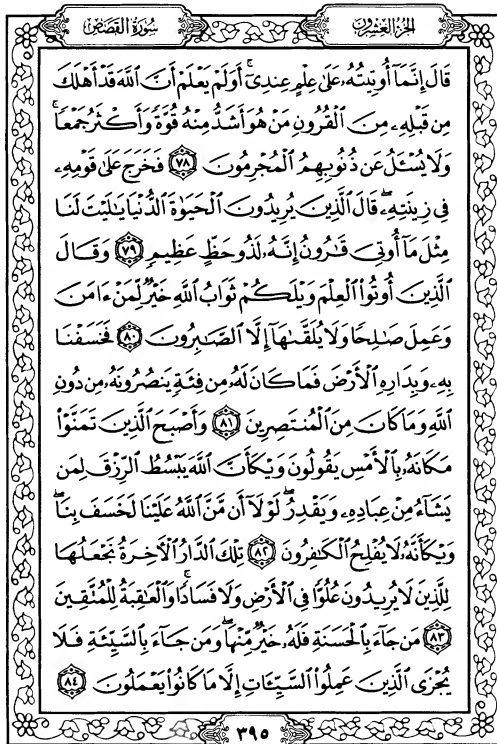 الجزء العشرون
سورة القصص
قَالَ إِنَّمَآ أُوتِيتُهُۥ عَلَىٰ عِلۡمٍ عِندِيٓۚ أَوَلَمۡ يَعۡلَمۡ أَنَّ ٱللَّهَ قَدۡ أَهۡلَكَ
مِن قَبۡلِهِۦ مِنَ ٱلۡقُرُونِ مَنۡ هُوَ أَشَدُّ مِنۡهُ قُوَّةٗ وَأَكۡثَرُ جَمۡعٗاۚ
وَلَا يُسۡـَٔلُ عَن ذُنُوبِهِمُ ٱلۡمُجۡرِمُونَ ٧٨ فَخَرَجَ عَلَىٰ قَوۡمِهِۦ
فِي زِينَتِهِۦۖ قَالَ ٱلَّذِينَ يُرِيدُونَ ٱلۡحَيَوٰةَ ٱلدُّنۡيَا يَٰلَيۡتَ لَنَا
مِثۡلَ مَآ أُوتِيَ قَٰرُونُ إِنَّهُۥ لَذُو حَظٍّ عَظِيمٖ ٧٩ وَقَالَ
ٱلَّذِينَ أُوتُواْ ٱلۡعِلۡمَ وَيۡلَكُمۡ ثَوَابُ ٱللَّهِ خَيۡرٞ لِّمَنۡ ءَامَنَ
وَعَمِلَ صَٰلِحٗا وَلَا يُلَقَّىٰهَآ إِلَّا ٱلصَّٰبِرُونَ ٨٠ فَخَسَفۡنَا
بِهِۦ وَبِدَارِهِ ٱلۡأَرۡضَ فَمَا كَانَ لَهُۥ مِن فِئَةٖ يَنصُرُونَهُۥ مِن دُونِ
ٱللَّهِ وَمَا كَانَ مِنَ ٱلۡمُنتَصِرِينَ ٨١ وَأَصۡبَحَ ٱلَّذِينَ تَمَنَّوۡاْ
مَكَانَهُۥ بِٱلۡأَمۡسِ يَقُولُونَ وَيۡكَأَنَّ ٱللَّهَ يَبۡسُطُ ٱلرِّزۡقَ لِمَن
يَشَآءُ مِنۡ عِبَادِهِۦ وَيَقۡدِرُۖ لَوۡلَآ أَن مَّنَّ ٱللَّهُ عَلَيۡنَا لَخَسَفَ بِنَاۖ
وَيۡكَأَنَّهُۥ لَا يُفۡلِحُ ٱلۡكَٰفِرُونَ ٨٢ تِلۡكَ ٱلدَّارُ ٱلۡأٓخِرَةُ نَجۡعَلُهَا
لِلَّذِينَ لَا يُرِيدُونَ عُلُوّٗا فِي ٱلۡأَرۡضِ وَلَا فَسَادٗاۚ وَٱلۡعَٰقِبَةُ لِلۡمُتَّقِينَ
٨٣ مَن جَآءَ بِٱلۡحَسَنَةِ فَلَهُۥ خَيۡرٞ مِّنۡهَاۖ وَمَن جَآءَ بِٱلسَّيِّئَةِ فَلَا
يُجۡزَى ٱلَّذِينَ عَمِلُواْ ٱلسَّيِّـَٔاتِ إِلَّا مَا كَانُواْ يَعۡمَلُونَ ٨٤
٣٩٥